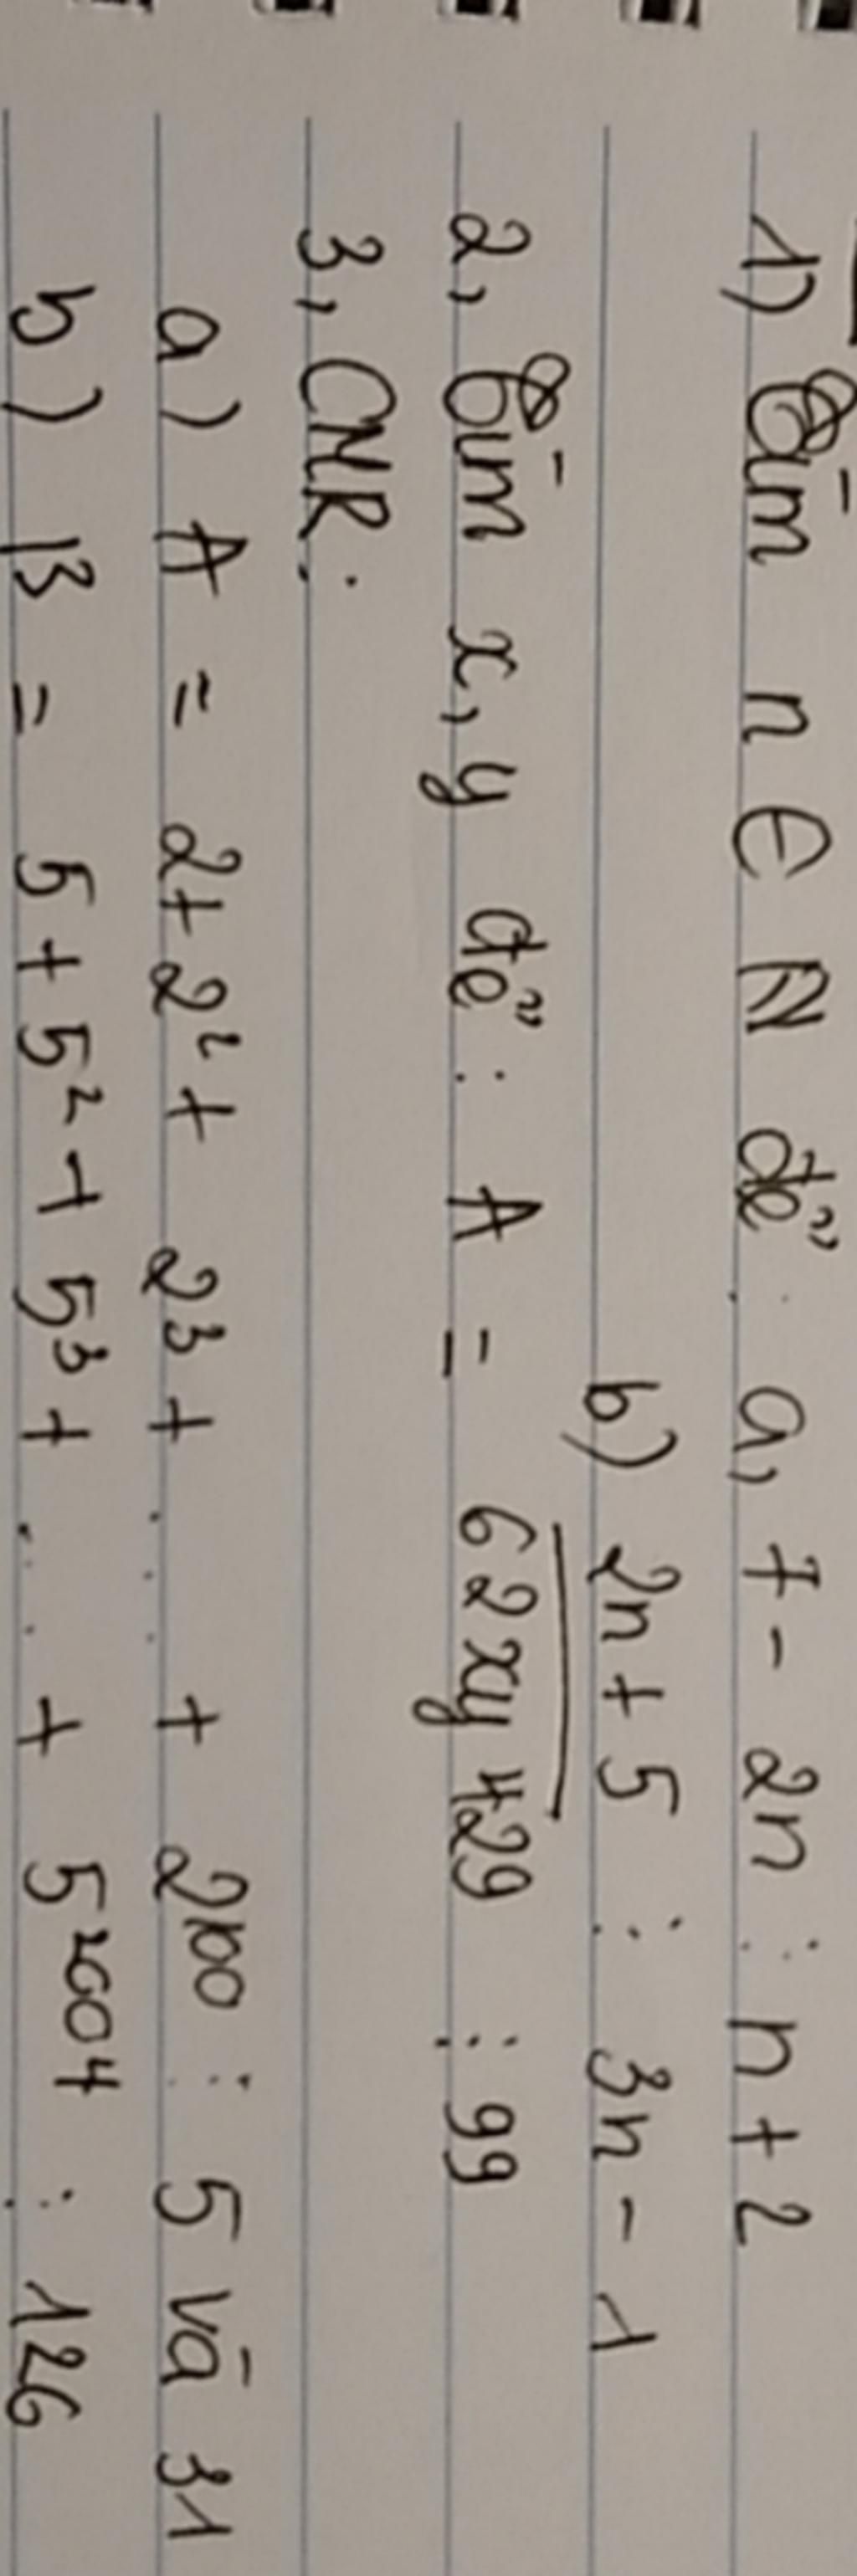 1) Tìm n ∈ N để: a, 7 - 2n ⋮ n + 2
b) 2n + 5 ⋮ 3n - 1
2, Tìm x, y để: A = \overline{62xy429} ⋮ 99
3, CNR:
a) A = 2 + 2² + 2³ + ... + 2¹⁰⁰ ⋮ 5 và 31
b) B = 5 + 5² + 5³ + ... + 5²⁰⁰⁴ ⋮ 126